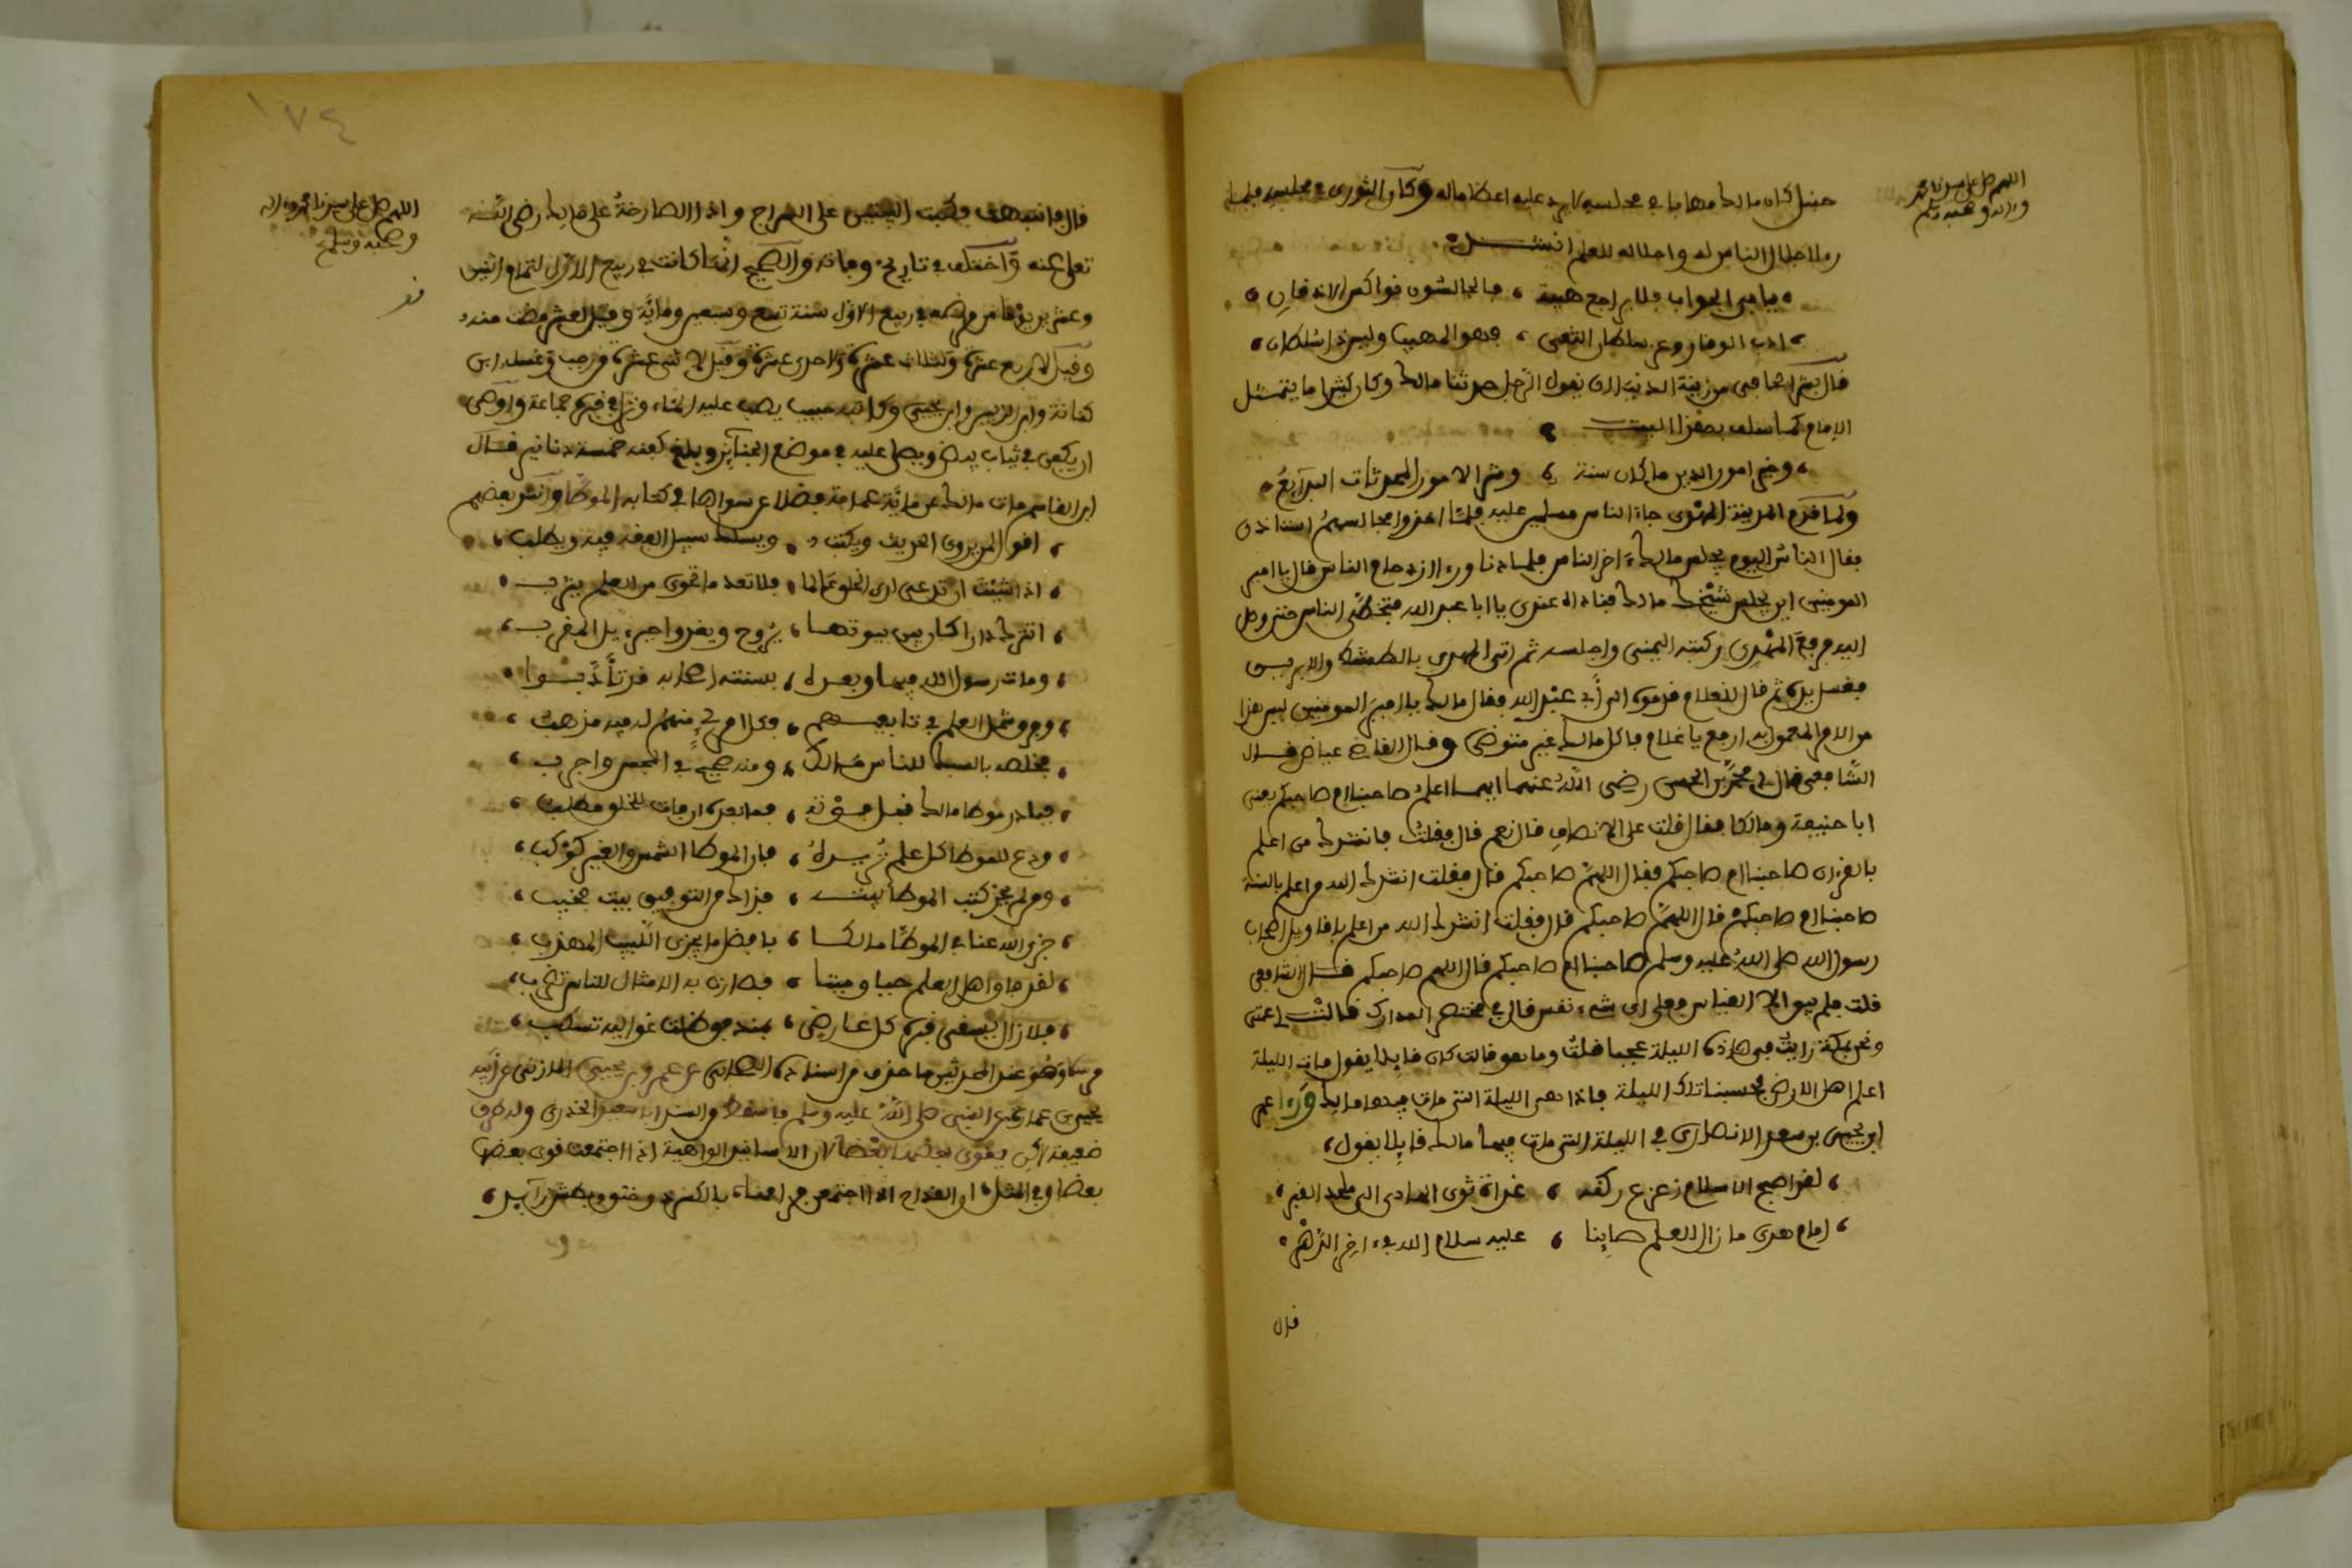 اللهم صل على سيدنا محمد
وءاله وصحبه وسلم
حنبل كان مالك مهابا في مجلسه لا يرد عليه اعظاما له وكان الثوري في مجلسه فلما
رءا اجلال الناس له واجلاله للعلم انشد
يابى الجواب فلا يراجع هيبة ، فالجالسون نواكس الاذقان
ادب الوقار وعز سلطان التقى ، فهو المهيب وليس ذا سلطان
قال بشر الحافي من زينة الدنيا ان يقول الرجل حدثنا مالك وكان كثيرا ما يتمثل
الإمام بهذا البيت
وخير امور الدين ما كان سنة ، وشر الامور المحدثات البدائع
ولما قدم المدينة المهدي جاءه الناس مسلمين عليه فلما اخذوا مجالسهم استاذن
فقال الناس اليوم يجلس مالك ءاخر الناس فلما دنا ورءا ازدحام الناس قال يا امير
المومنين اين يجلس شيخك مالك فناداه عندي يا ابا عبد الله فتخطى الناس حتى وصل
اليه فرفع المهدي ركبته اليمنى واجلسه ثم اتى المهدي بالطشت والابريق
فغسل يده ثم قال للغلام قدمه الى أبي عبد الله فقال مالك يا امير المومنين ليس هذا
من الامر المعمول به ارفع يا غلام فاكل مالك غير متوضئ وقال القاضي عياض قال
الشافعي قال لي محمد بن الحسن رضي الله عنهما ايهما اعلم صاحبنا ام صاحبكم يعني
ابا حنيفة ومالكا فقال قلت على الانصاف قال نعم قال فقلت فانشدك من اعلم
بالقرءان صاحبنا ام صاحبكم فقال اللهم صاحبكم قال فقلت انشدك الله من اعلم بالسنة
صاحبنا ام صاحبكم قال اللهم صاحبكم قال فقلت انشدك الله من اعلم باقاويل اصحاب
رسول الله صلى الله عليه وسلم صاحبنا ام صاحبكم قال اللهم صاحبكم قال الشافعي
قلت فلم يبق الا القياس فعلى اي شيء نقيس قال في مختصر المدارك قالت لي عمتي
ونحن بمكة رايت في هاذه الليلة عجبا قلت وما هو قالت كان قايلا يقول مات الليلة
اعلم اهل الارض فحسبنا تلك الليلة فاذا هي الليلة التي مات فيها مالك ورءا عمر
ابن يحيى بن سعد الانصاري في الليلة التي مات فيها مالك قايلا يقول
لقد اصبح الاسلام زعزع ركنه ، غداة ثوى الهادي الى ملحد القبر
امام هدى ما زال للعلم صاينا ، عليه سلام الله في ءاخر الدهر
قال
١٧٤
اللهم صل على سيدنا محمد وءاله
وصحبه وسلم
قال فانتبهت فكتبت البيتين على السراج واذا الصارخة على مالك رضي الله
تعلى عنه واختلف في تاريخ وفاته والصحيح انها كانت في ربيع الاول لتمام اثنين
وعشرين يوما من مرضه في ربيع الاول سنة تسع وسبعين وماية وقيل لعشر مضت منه
وقيل لاربع عشرة ولثلاث عشرة ولاحدى عشرة وقيل لاثنتي عشرة من رجب وغسله ابن
كنانة وابن الزبير وابن يحيى وكاتبه حبيب يصب عليه الماء ونزل في قبره جماعة واوصى
ان يكفن في ثياب بيض ويصلى عليه في موضع الجنائز وبلغ كفنه خمسة دنانير قال
ابن القاسم مات مالك عن ماية عمامة فضلا عن سواها في كتابه الموطأ وانشد بعضهم
اقول لمن يروي الحديث ويكتب ، ويسلك سبيل الفقه فيه ويطلب
اذا شئت ان تدعى لدى الخلق عالما ، فلا تعد ما تحوي من العلم يثرب
اتترك دارا كان بين بيوتها ، يروح ويغدو جبرءيل المقرب
ومات رسول الله فيها وبعده ، بسنته اصحابه قد تأدبوا
وفرق شمل العلم في تابعيهم ، فكل امرئ منهم له فيه مذهب
فخلصه بالسبك للناس مالك ، ومنه صحيح في المجس واجرب
فبادر موطا مالك قبل موته ، فما بعده ان مات للخلق مطلب
ودع للموطا كل علم تريده ، فان الموطا الشمس والغير كوكب
ومن لم يحز كتب الموطا ببيته ، فذاك من التوفيق بيت مخيب
جزى الله عنا في الموطا مالكا ، بافضل ما يجزى اللبيب المهذب
لقد فاق اهل العلم حيا وميتا ، فصارت به الامثال للناس تضرب
فلا زال يسقي قبره كل عارض ، بمندفق ظلت غواليه تسكب
يحيى بن عمارة عن النبي صلى الله عليه وسلم فاسقط من السند ابا سعيد الخدري وله طرق
ضعيفة لكن يقوى بعضها بعضا لان الاسانيد الواهية اذا اجتمعت قوى بعضها
بعضا وفي المثل